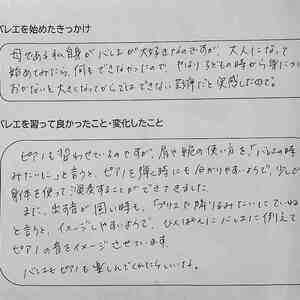 バレエを始めたきっかけ
母である私自身がバレエが大好きなのですが、大人になって
始めてみたら、何もできなかったので、やはり子どもの時から身につ
おかないと大きくなってからではできない踊りだと実感したので。
バレエを習って良かったこと・変化したこと
ピアノも習わせているのですが、肩や腕の使い方を、「バレエの時
みたいに」と言うと、ピアノを弾く時にも分かりやすいようで、少し
身体を使って演奏することができてきました。
また、出す音が固い時も、「プリエで降りるみたいにしていね
と言うと、イメージしやすいようで、ひんぱんにバレエに例えて
ピアノの音をイメージさせています。
バレエもピアノも楽しんでくれたらいいな。